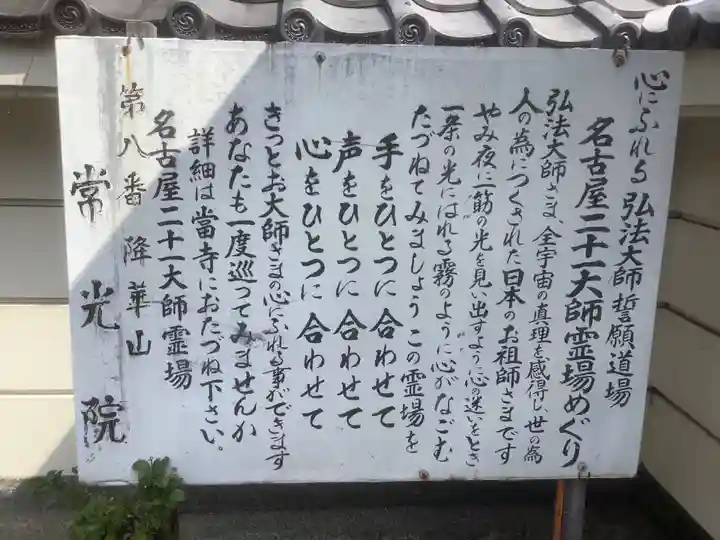 心にふれる 弘法大師誓願道場
名古屋二十一大師霊場めぐり
弘法大師さま、全宇宙の真理を感得し、世の為
人の為につくされた日本のお祖師さまです
やみ夜に一筋の光を見い出すように心の迷いをとき
一条の光にはれる霧のように心がなごむ
たづねてみましょうこの霊場を
手をひとつに合わせて
声をひとつに合わせて
心をひとつに合わせて
きっとお大師さまの心にふれる事ができます
あなたも一度巡ってみませんか
詳細は當寺におたづね下さい。
名古屋二十一大師霊場
第八番 降華山
常光院